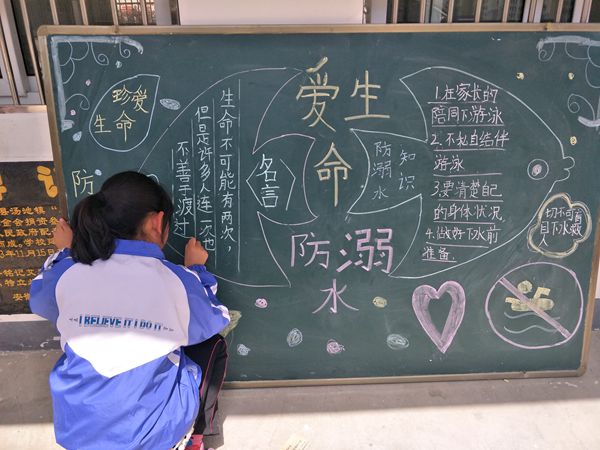 珍爱
生命
防
生命不可能有两次，
但是许多人连一次也
不善于渡过
名言
爱生
命
防溺
水
防溺水
知识
1.在家长的
陪同下游泳
2.不私自结伴
游泳
3.要清楚自己
的身体状况
4.做好下水前
准备.
切不可盲
目下水救人
县汤池镇
民政府配
I BELIEVE IT I DO IT